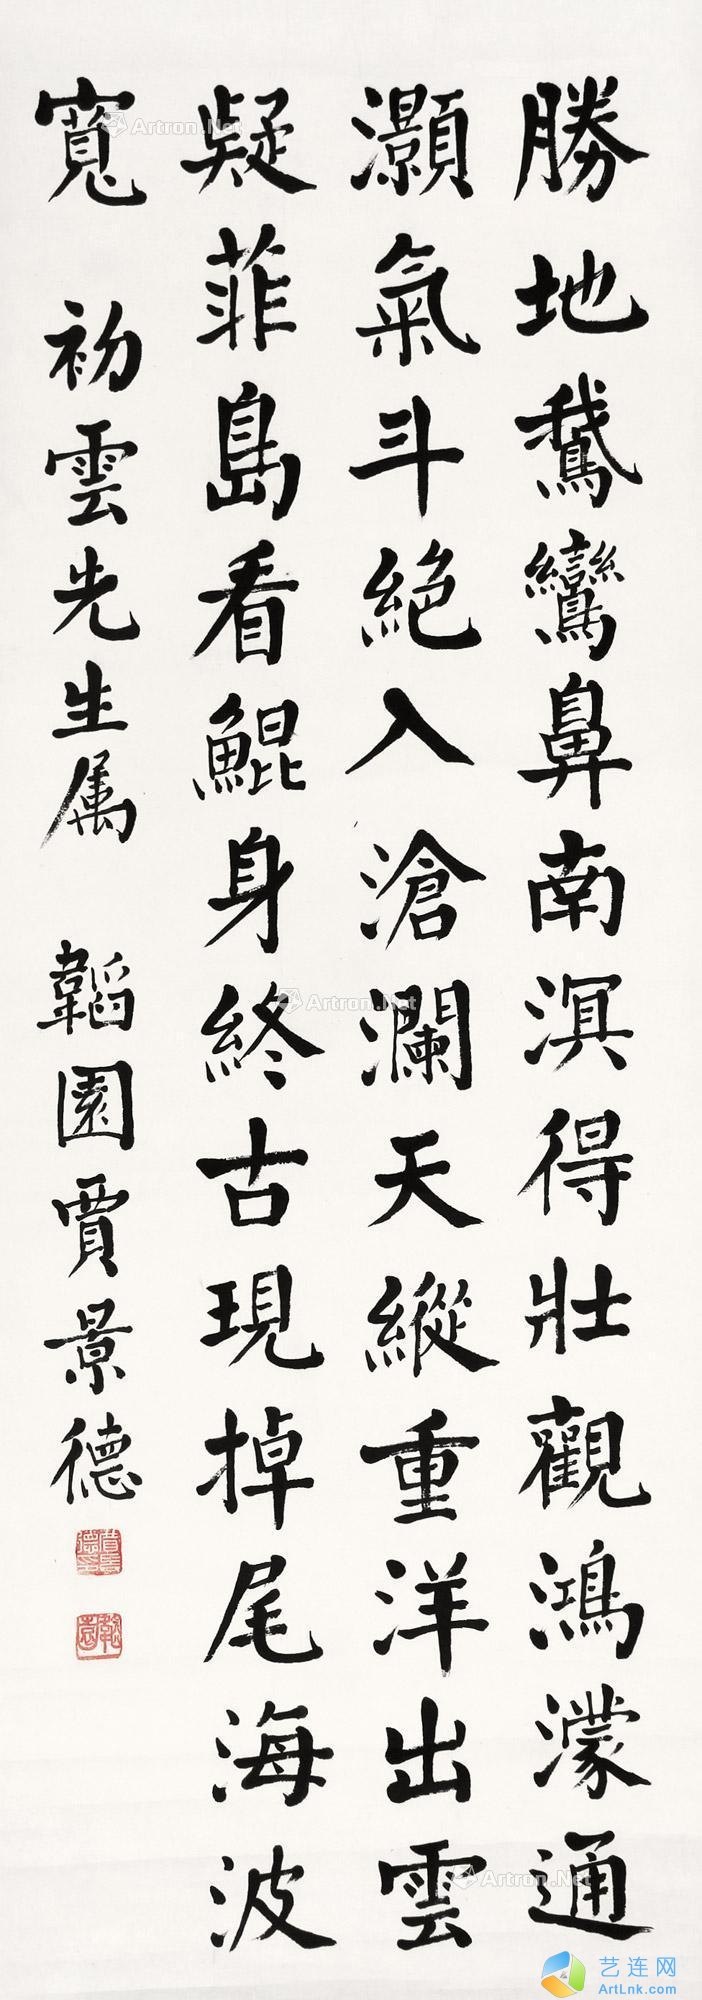 勝地鵞鸞鼻南溟得壯觀鴻濛通
灝氣斗絶入滄瀾天縱重洋出雲
疑菲島看鯤身終古現掉尾海波
寬 初雲先生属 韜園賈景德
韜園
Artron.Net
Artron.Net
Artron.Net
艺连网
ArtLnk.com